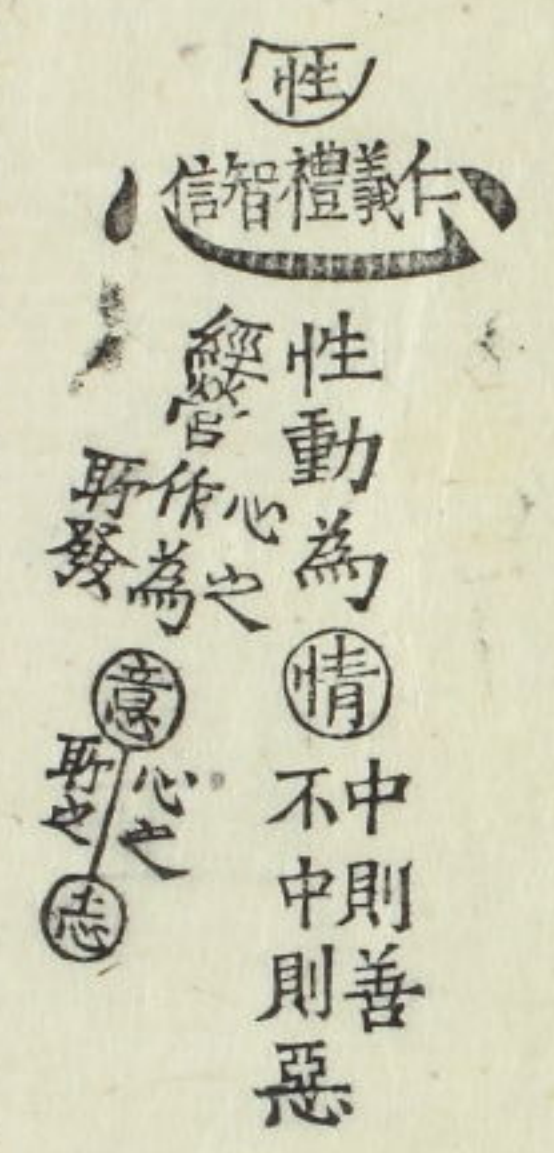 性
仁義禮智信
性動為
情
中則善
不中則惡
心之
經營作為
所發
意
心之
所之
志